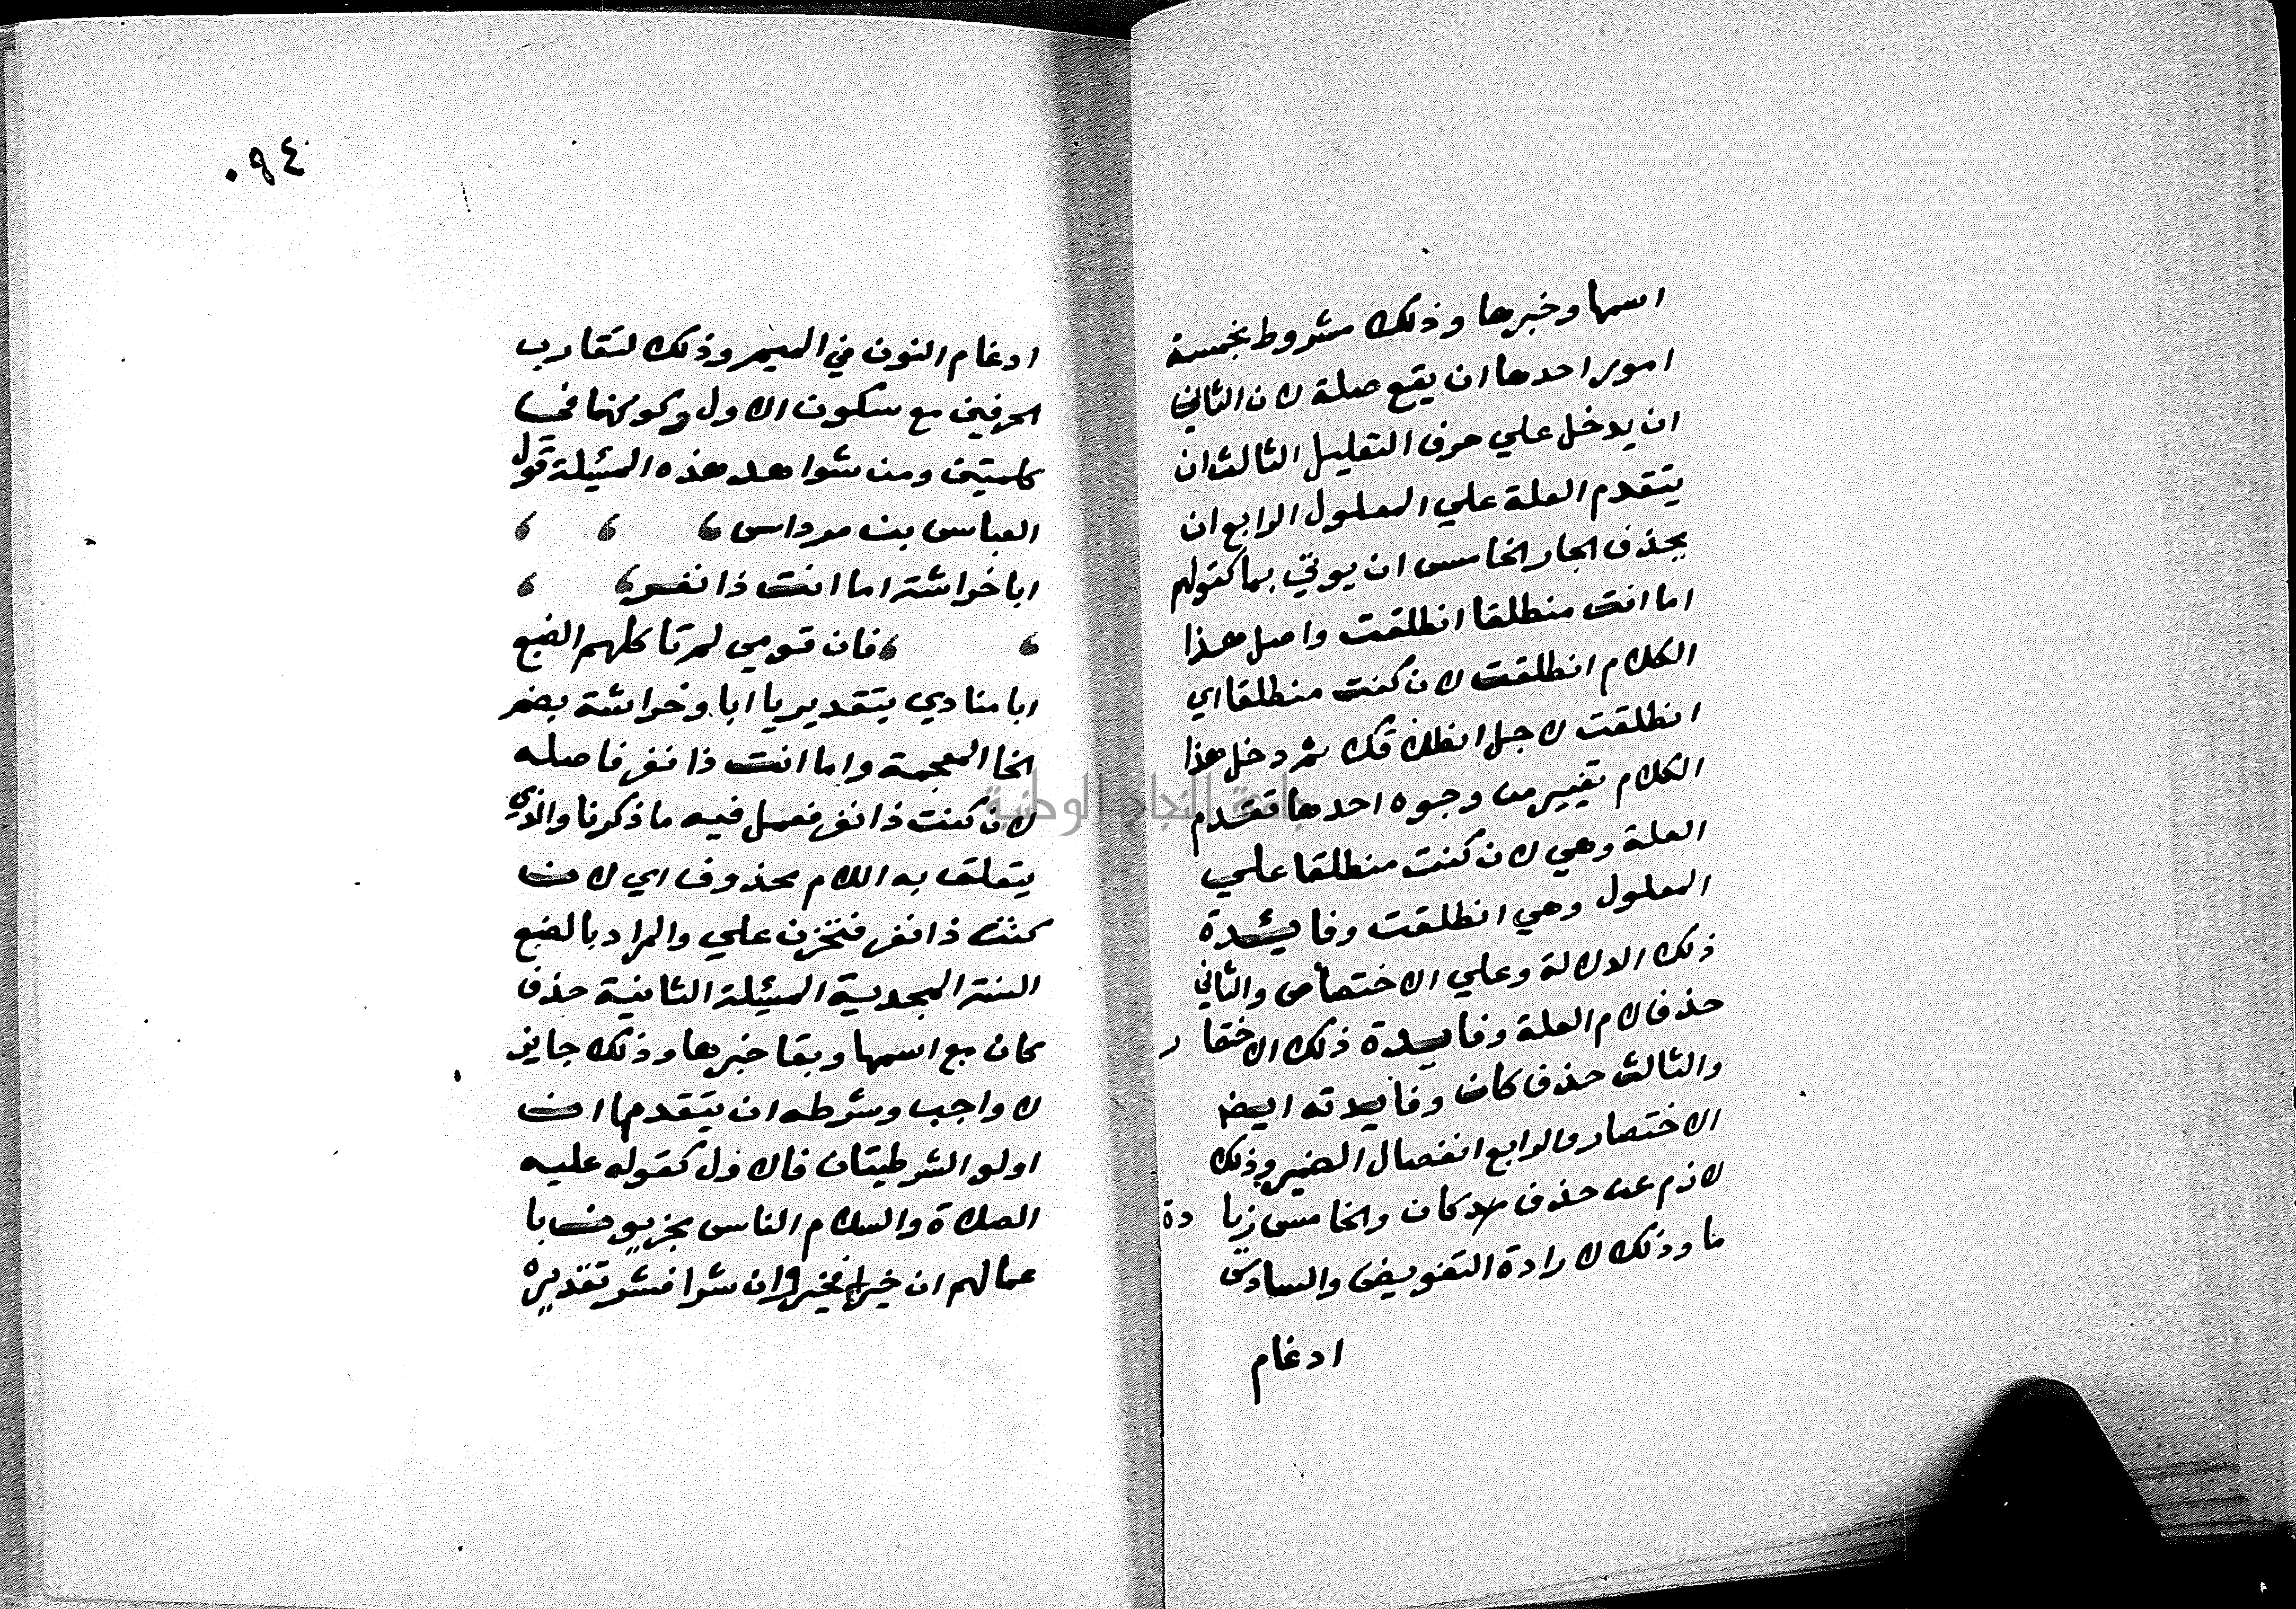 اسمها وخبرها وذلك مشروط بخمسة
امور احدها ان يقع صلة لان الثاني
ان يدخل علي حرف التعليل الثالث ان
يتقدم العلة علي المعلول الرابع ان
يحذف الجار الخامس ان يوتي بما كقولهم
اما انت منطلقا انطلقت واصل هذا
الكلام انطلقت لان كنت منطلقا اي
انطلقت لاجل انطلاقك ثم دخل هذا
الكلام تغيير من وجوه احدها تقدم
العلة وهي لان كنت منطلقا علي
المعلول وهي انطلقت وفايئدة
ذلك الدلالة وعلي الاختصاص والثاني
حذف لام العلة وفايدة ذلك الاختصار
والثالث حذف كان وفايدته ايضا
الاختصار والرابع انفصال الضمير وذلك
لازم عن حذف كان والخامس زيادة
ما وذلك لارادة التعويض والسادس
ادغام
٠٩٤
ادغام النون في الميم وذلك لتقارب
الحرفين مع سكون الاول وكونهما في
كلمتين ومن شواهد هذه المسئلة قول
العباس بن مرداس
ابا خراشة اما انت ذا نفر
فان قومي لم تاكلهم الضبع
ابا منادي بتقدير يا ابا وخراشة بضم
الخا المعجمة واما انت ذا نفر فاصله
لان كنت ذا نفر فعمل فيه ما ذكرنا والذي
يتعلق به اللام محذوف اي لان
كنت ذا نفر فتخزن علي والمراد بالضبع
السنة المجدبة المسئلة الثانية حذف
كان مع اسمها وبقا خبرها وذلك جايز
لا واجب وشرطه ان يتقدمها ان
او لو الشرطيتان فالاول كقوله عليه
الصلاة والسلام الناس مجزيون با
عمالهم ان خيرا فخير وان شرا فشر تقديره
جامعة النجاح الوطنية